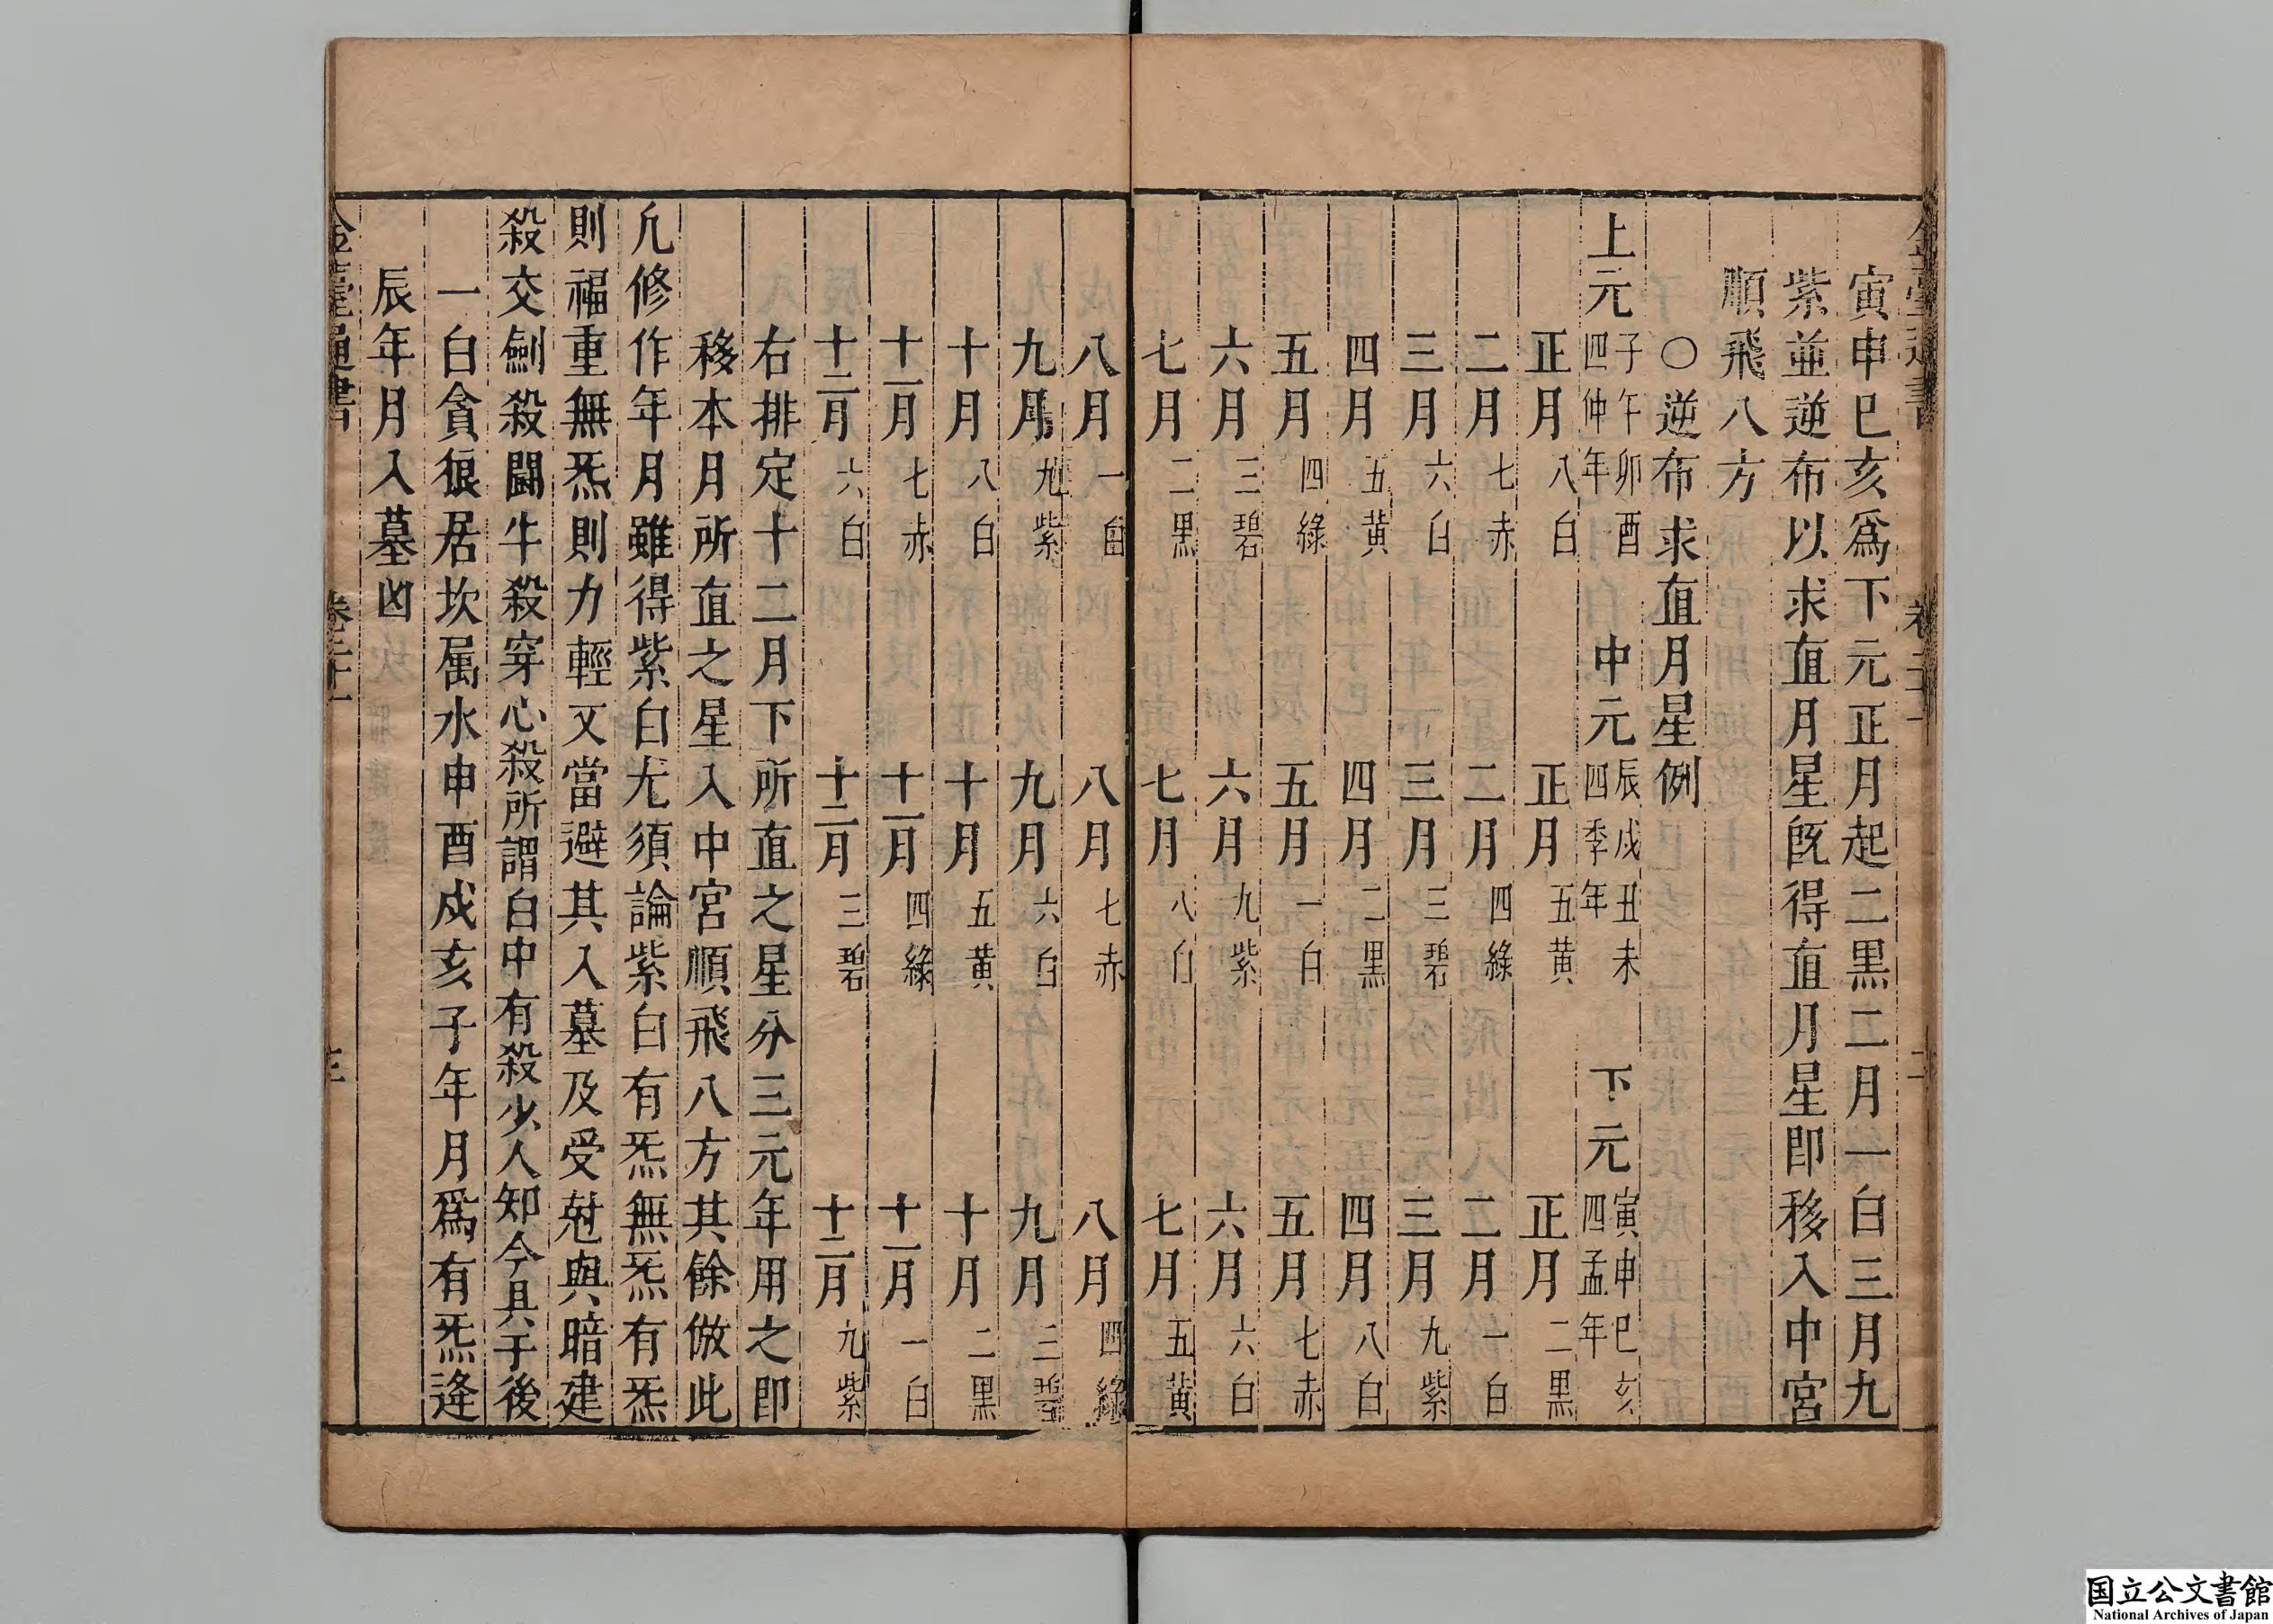 寅申巳亥爲下元正月起二黒二月一白三月九
紫並逆布以求直月星旣得直月星即移入中宮
順飛八方
○逆布求直月星例
上元 子午卯酉四仲年 中元 辰戌丑未四季年 下元 寅申巳亥四孟年
正月 八白 正月 五黄 正月 二黒
二月 七赤 二月 四綠 二月 一白
三月 六白 三月 三碧 三月 九紫
四月 五黄 四月 二黒 四月 八白
五月 四綠 五月 一白 五月 七赤
六月 三碧 六月 九紫 六月 六白
七月 二黒 七月 八白 七月 五黄
八月 一白 八月 七赤 八月 四綠
九月 九紫 九月 六白 九月 三碧
十月 八白 十月 五黄 十月 二黒
十一月 七赤 十一月 四綠 十一月 一白
十二月 六白 十二月 三碧 十二月 九紫
右排定十二月下所直之星分三元年用之即
移本月所直之星入中宮順飛八方其餘倣此
凡修作年月雖得紫白尤須論紫白有炁無炁有炁
則福重無炁則力輕又當避其入墓及受尅與暗建
殺交劍殺鬬牛殺穿心殺所謂白中有殺少人知今具于後
一白貪狼居坎属水申酉戌亥子年月爲有炁逢
辰年月入墓凶
金臺通書 卷二十一
国立公文書館
National Archives of Japan